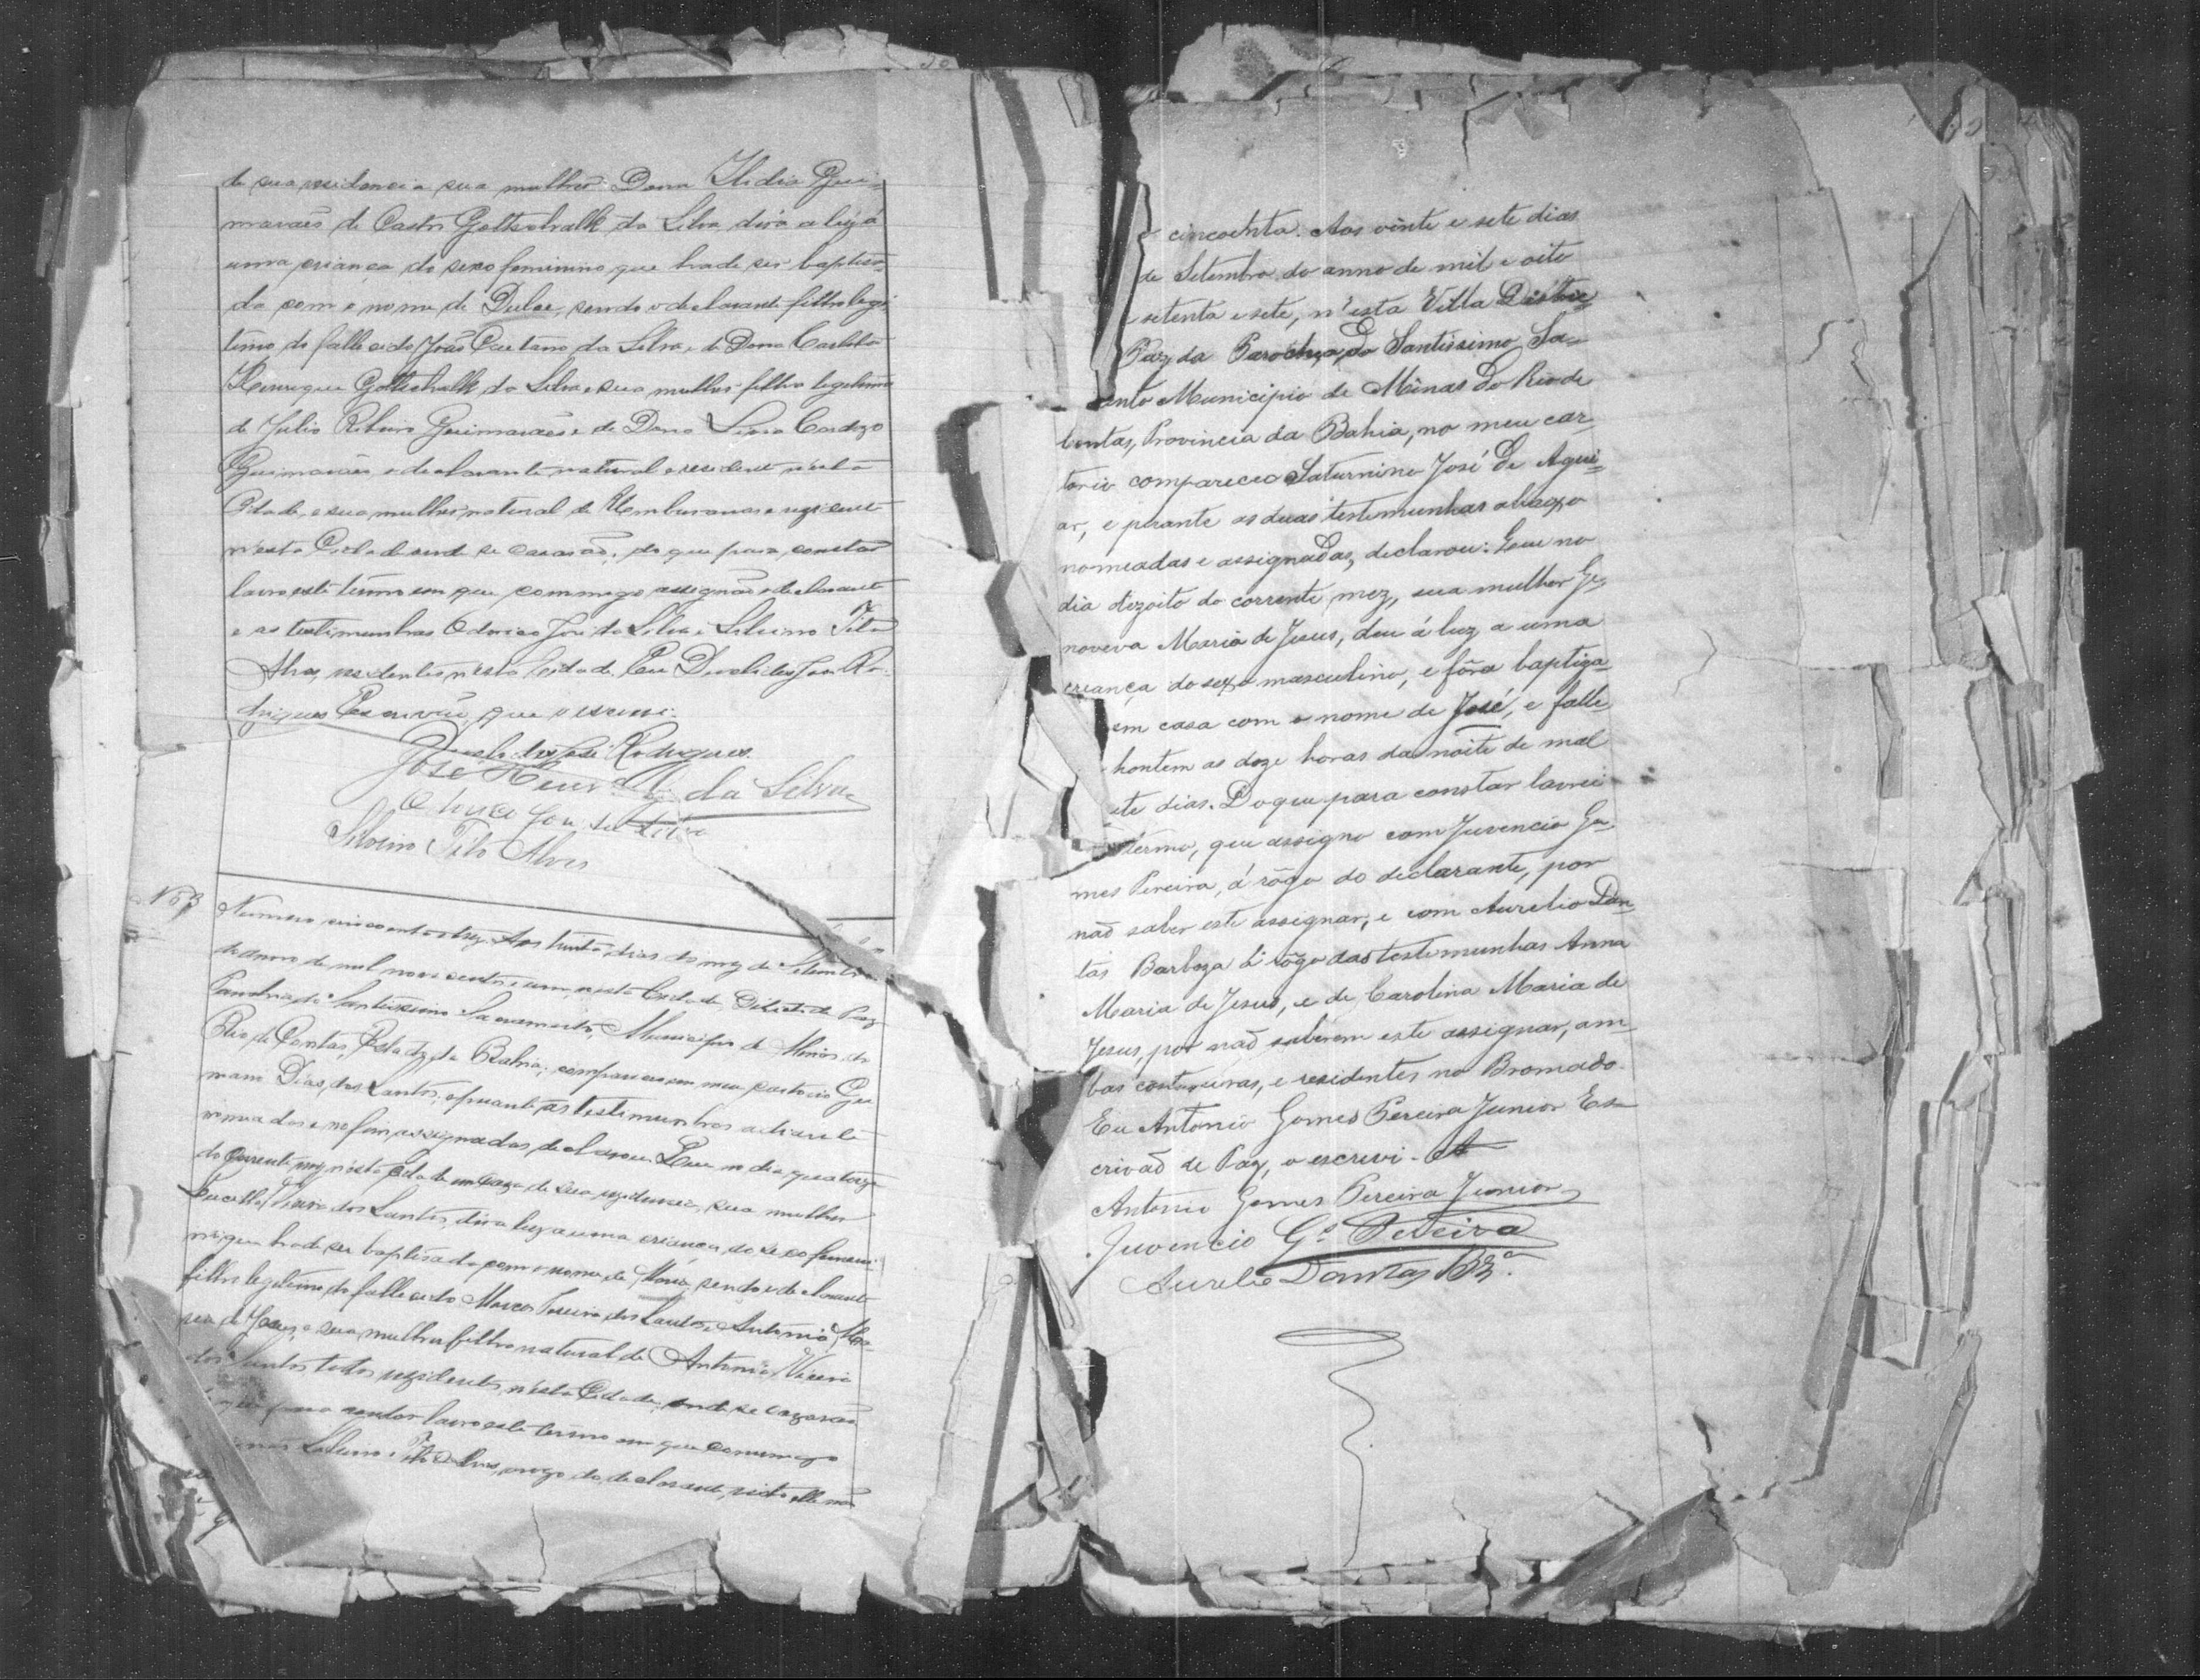 de sua residencia sua mulher Dona Ilidia Gui-
marães de Castro Gottschalk da Silva, dera a luz á
uma criança do sexo feminino que hade ser baptisa-
da com o nome de Dulce, sendo o declarante filho legi-
timo do fallecido João Caetano da Silva e de Dona Carlota
Henrique Gottschalk da Silva e sua mulher filha legitima
de Julio Guimarães e de Dona Cardozo
Guimarães, o declarante natural e residente n'esta
Cidade, e sua mulher natural de e residente
n'esta Cidade onde se casarão, do que para constar
lavro este termo em que commigo assignão o declarante
e as testimunhas Odorico José da Silva e Silvino Tito
Alves, residentes n'esta Cidade. Eu José Ro-
drigues Escrivão, que o escrevi.
José Rodrigues.
José Henr da Silva
José da Silva
Silvino Tito Alves
N 53
Numero cincoenta e trez. Aos trinta dias do mez de Setembro
do anno de mil nove centos e um, nesta Cidade, Districto de Paz
Parochia do Santissimo Sacramento, Municipio de Minas do
Rio de Contas, Estado da Bahia, compareceu em meu cartorio Ger
mano Dias dos Santos, e perante as testimunhas adiante
nomiadas e no fim assignadas, declarou: Que no dia quatorze
do corrente mez, n'esta Cidade em caza de sua rezidencia, sua mulher
dos Santos, dera luz a uma criança do sexo femeni-
no que hade ser baptisada com o nome de Maria, sendo o declarante
filho legitimo do fallecido Marcos dos Santos e Antonia Ma-
ria de Jesus, e sua mulher filha natural de Antonia
dos Santos todos rezidentes n'esta Cidade, onde se cazarão
do que para constar lavro este termo em que commigo
Silvino Tito Alves, a rogo do declarante, visto elle não
e cincoehta. Aos vinte e sete dias
de Setembro do anno de mil e oito
e setenta e sete, n'esta Villa Distric-
Paz da Parochia do Santissimo Sa-
ento Municipio de Minas do Rio de
Contas, Provincia da Bahia, no meu car-
torio compareceo Saturnino José de Agui-
ar, e perante as duas testemunhas abaixo
nomeadas e assignadas, declarou: Que no
dia dezoito do corrente mez, sua mulher Ge-
noveva Maria de Jesus, deu á luz a uma
criança do sexo masculino, e fôra baptiza-
em casa com o nome de José, e falle-
hontem as doze horas da noite de mal
ete dias. Do que para constar lavrei
termo, que assigno com Juvencio Go-
mes Pereira, á rôgo do declarante, por
naõ saber este assignar; e com Aurelio Dan-
tas Barboza á rôgo das testemunhas Anna
Maria de Jesus, e de Carolina Maria de
Jesus, por naõ saberem este assignar, am-
bas costureiras, e residentes no Bromado.
Eu Antonio Gomes Pereira Junior Es-
crivaõ de Paz, o escrevi.
Antonio Gomes Pereira Junior
Juvencio G.s Pereira
Aurelio Dantas Bz.a